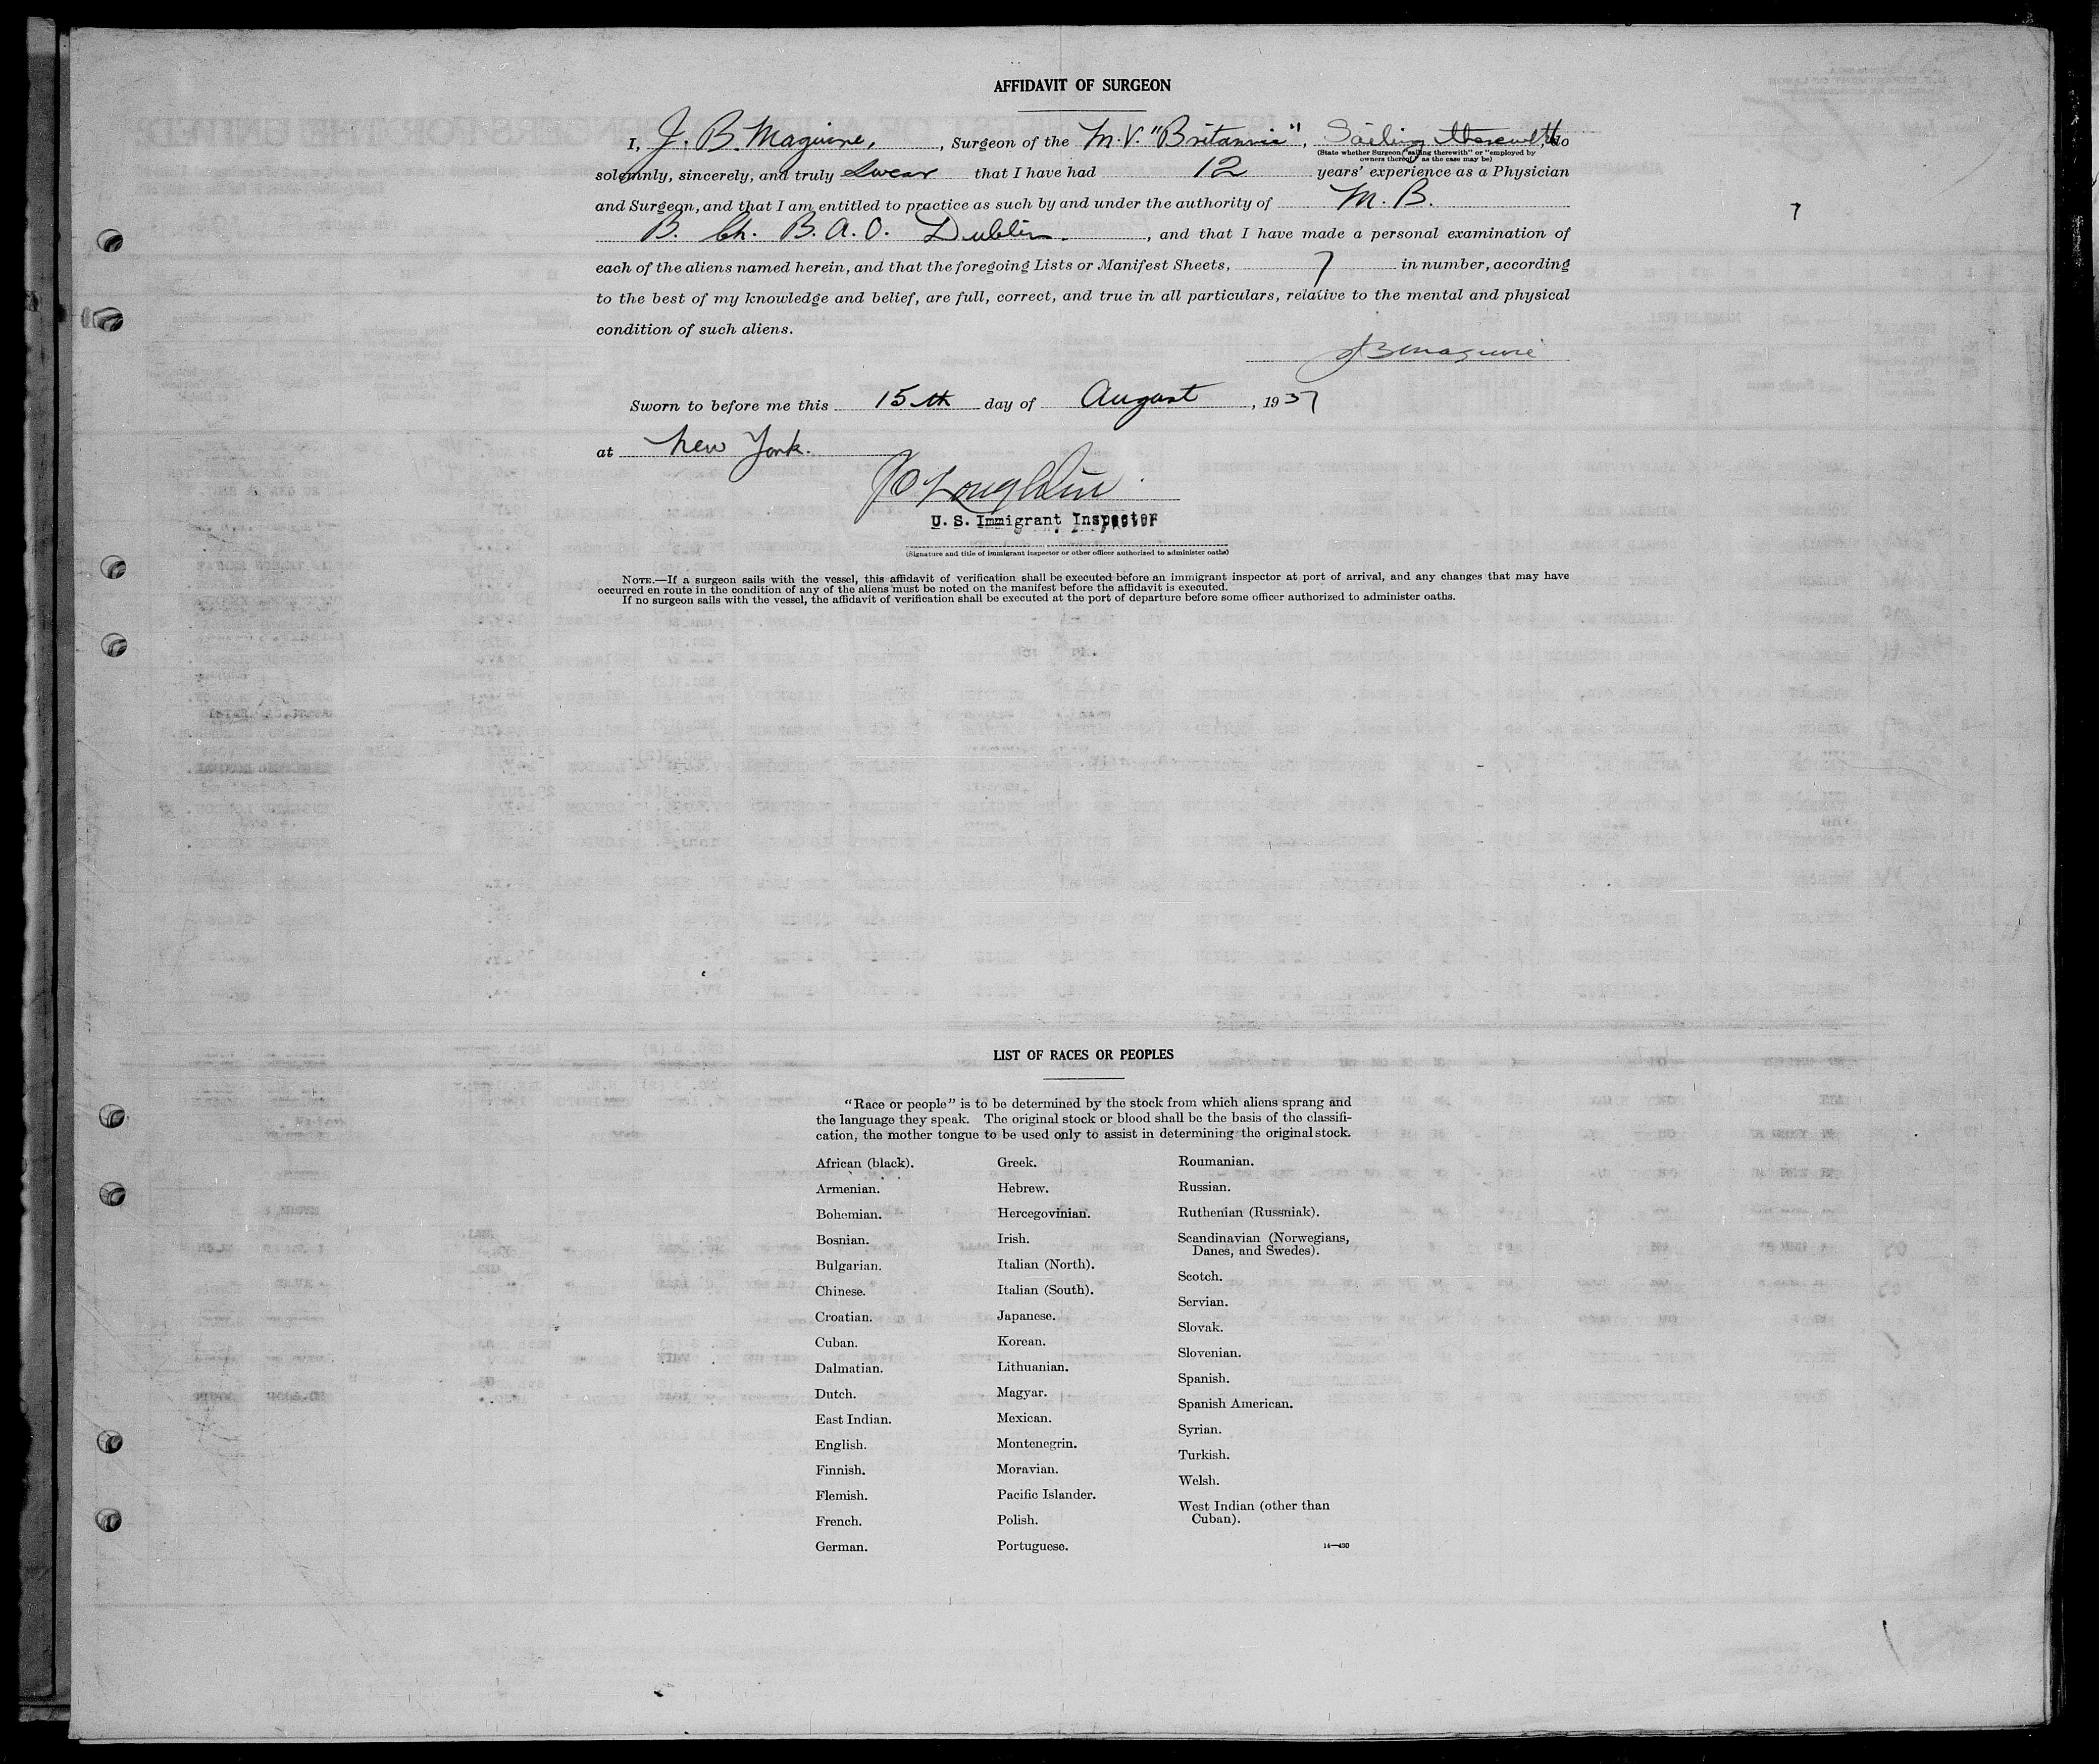 AFFIDAVIT OF SURGEON
I, J. B. Maguire, , Surgeon of the M.V. "Britannic", Sailing therewith, do
(State whether Surgeon "sailing therewith" or "employed by
owners thereof," as the case may be)
solemnly, sincerely, and truly Swear that I have had 12 years' experience as a Physician
and Surgeon, and that I am entitled to practice as such by and under the authority of M. B.
B. Ch. B. A. O. Dublin. , and that I have made a personal examination of
7
each of the aliens named herein, and that the foregoing Lists or Manifest Sheets, 7 in number, according
to the best of my knowledge and belief, are full, correct, and true in all particulars, relative to the mental and physical
condition of such aliens.
JBMaguire
Sworn to before me this 15th day of August , 1937
at New York.
U. S. Immigrant Inspector
(Signature and title of immigrant inspector or other officer authorized to administer oaths)
NOTE.—If a surgeon sails with the vessel, this affidavit of verification shall be executed before an immigrant inspector at port of arrival, and any changes that may have
occurred en route in the condition of any of the aliens must be noted on the manifest before the affidavit is executed.
If no surgeon sails with the vessel, the affidavit of verification shall be executed at the port of departure before some officer authorized to administer oaths.
LIST OF RACES OR PEOPLES
"Race or people" is to be determined by the stock from which aliens sprang and
the language they speak. The original stock or blood shall be the basis of the classifi-
cation, the mother tongue to be used only to assist in determining the original stock.
African (black).
Armenian.
Bohemian.
Bosnian.
Bulgarian.
Chinese.
Croatian.
Cuban.
Dalmatian.
Dutch.
East Indian.
English.
Finnish.
Flemish.
French.
German.
Greek.
Hebrew.
Hercegovinian.
Irish.
Italian (North).
Italian (South).
Japanese.
Korean.
Lithuanian.
Magyar.
Mexican.
Montenegrin.
Moravian.
Pacific Islander.
Polish.
Portuguese.
Roumanian.
Russian.
Ruthenian (Russniak).
Scandinavian (Norwegians,
Danes, and Swedes).
Scotch.
Servian.
Slovak.
Slovenian.
Spanish.
Spanish American.
Syrian.
Turkish.
Welsh.
West Indian (other than
Cuban).
14—430